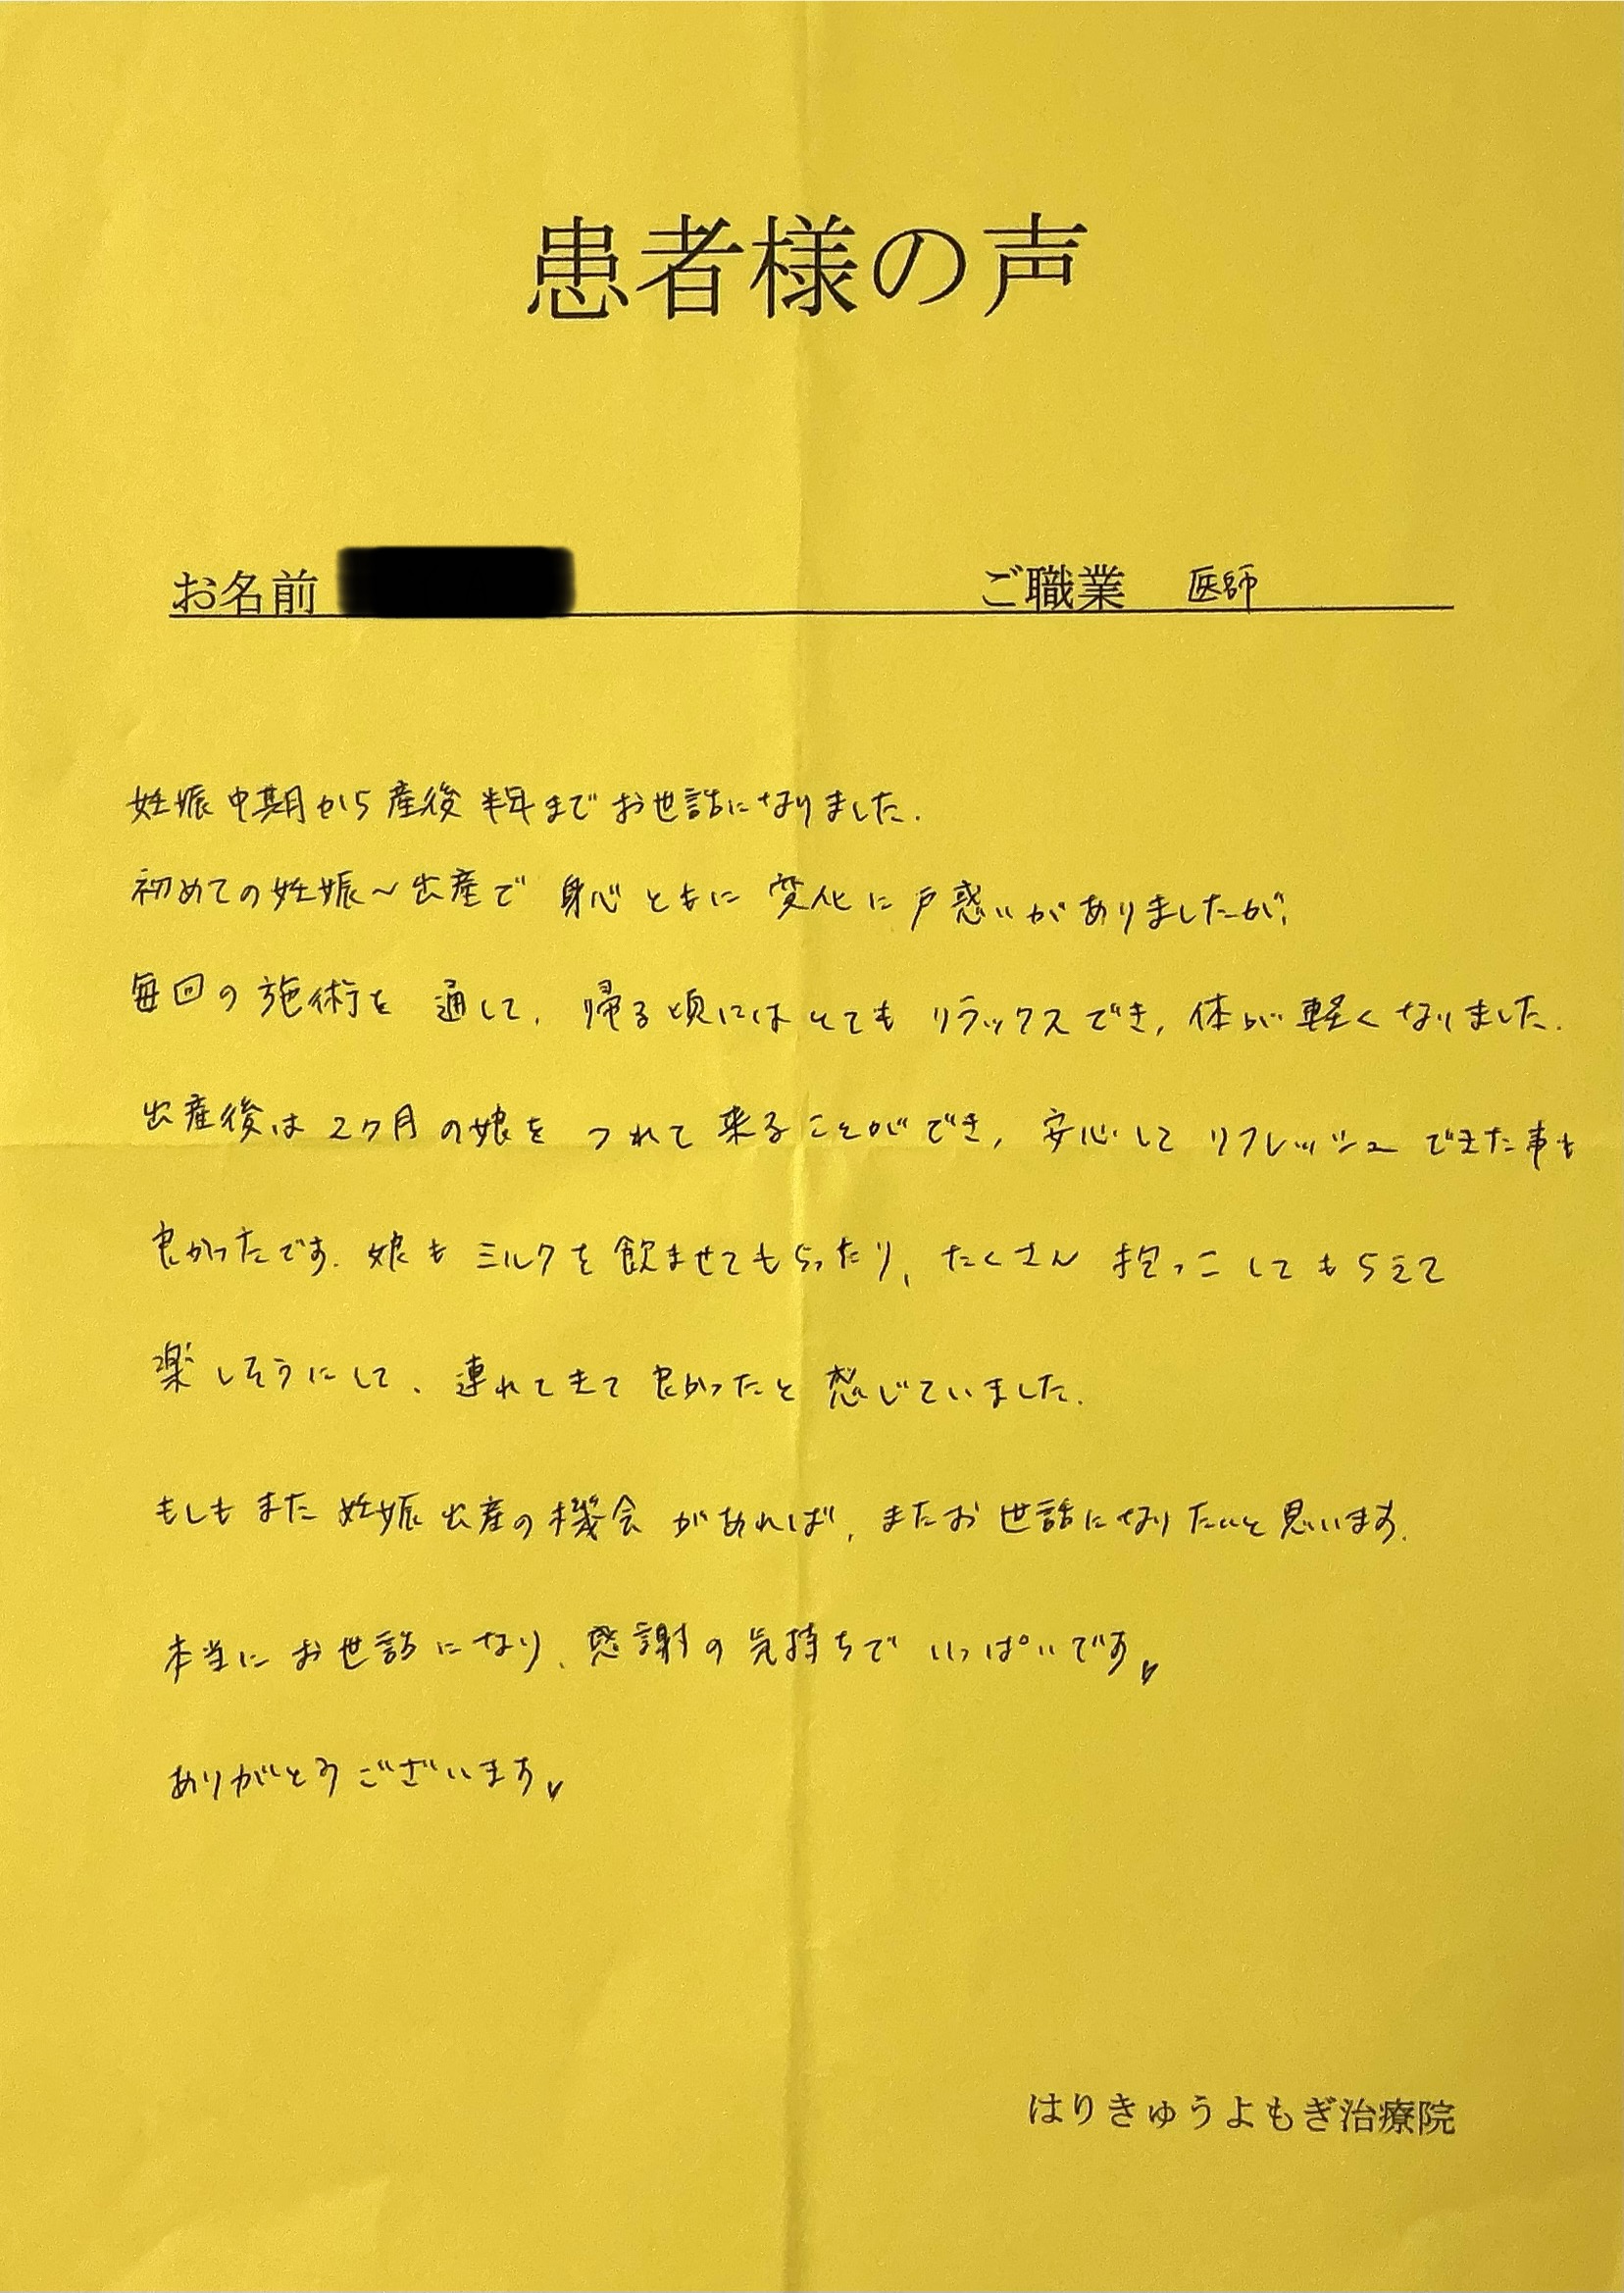 患者様の声
お名前 ご職業 医師
妊娠中期から産後半年までお世話になりました.
初めての妊娠〜出産で 身心ともに変化に戸惑いがありましたが、
毎回の施術を通して、帰る頃にはとてもリラックスでき, 体が軽くなりました.
出産後は2ヶ月の娘をつれて来ることができ, 安心してリフレッシュできた事も
良かったです. 娘もミルクを飲ませてもらったり, たくさん抱っこしてもらえて
楽しそうにして、連れてきて良かったと感じていました.
もしもまた妊娠出産の機会があれば, またお世話になりたいと思います.
本当にお世話になり、感謝の気持ちでいっぱいです♡
ありがとうございます♡
はりきゅうよもぎ治療院